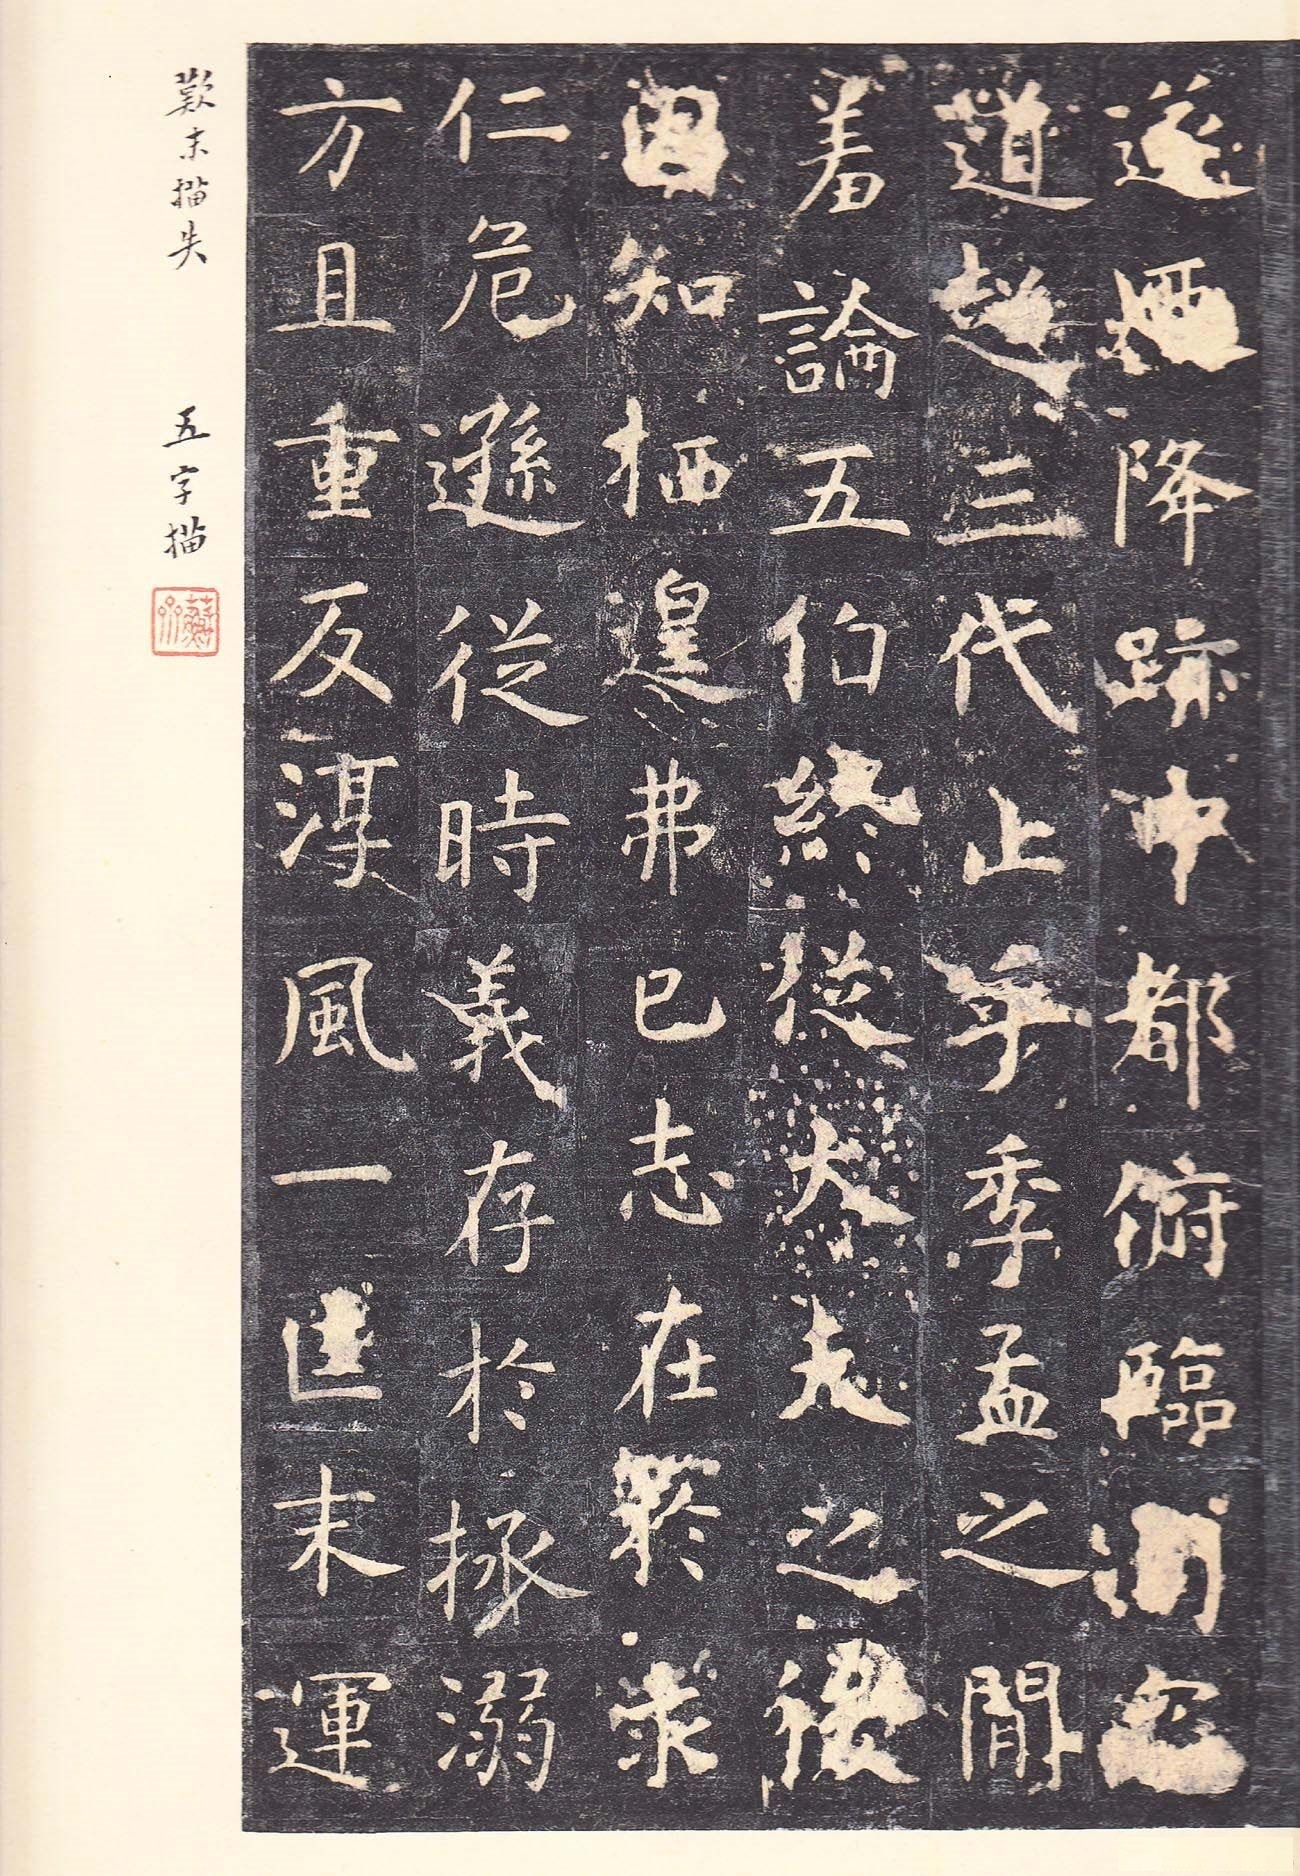 遂迺降跡中都俯臨司寇
道超三代止乎季孟之間
羞論五伯終從大夫之後
固知栖遑弗已志在於求
仁危遜從時義存於拯溺
方且重反淳風一匡末運
歎末描失 五字描